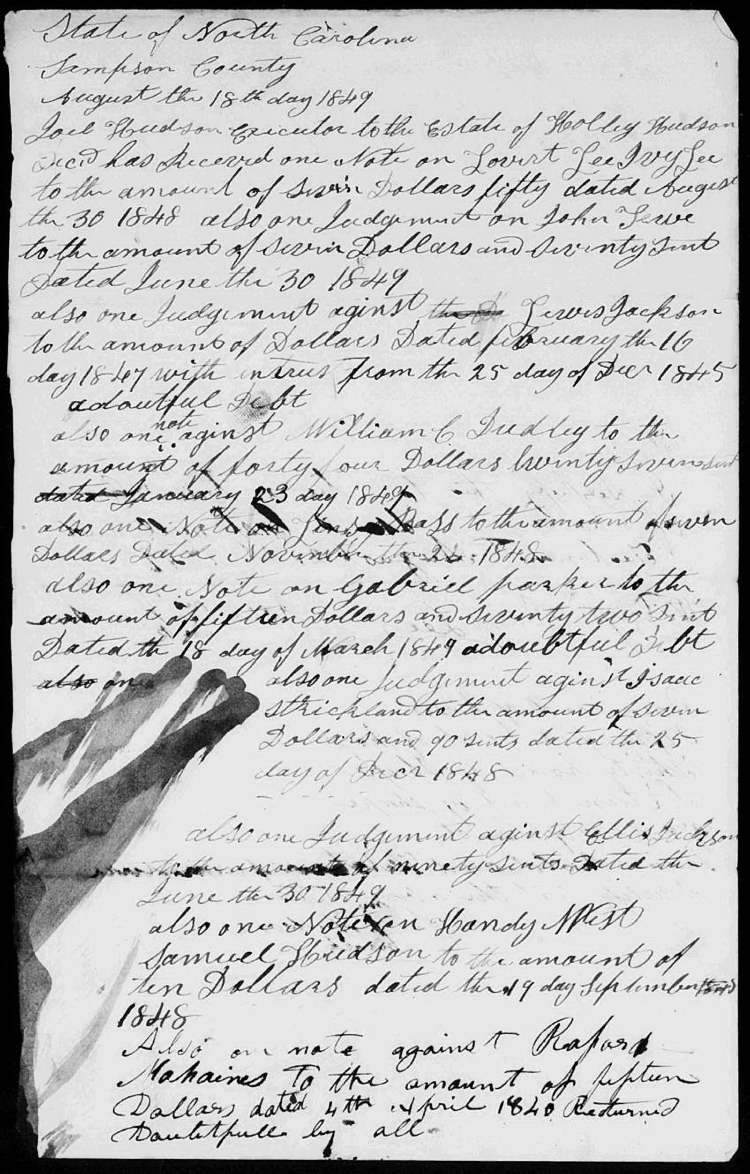 State of North Carolina
Sampson County
August the 18th day 1849
Joel Hudson Executor to the Estate of Holley Hudson
Decd has Receved one Note on Lovert Lee Ivy Lee
to the amount of sevin Dollars fifty dated August
the 30 1848 also one Judgement on John
to the amount of sevin Dollars and seventy sent
Dated June the 30 1849
also one Judgement aginst Lewis Jackson
to the amount of Dollars Dated february the 16
day 1847 with intrus from the 25 day of Decr 1845
adoutful Debt
also one note aginst William C Dudley to the
amount of forty four Dollars twenty sevin sent
dated January 23 day 1849
also one Note on Bass to the amount of sevin
Dollars Dated November the 1848
also one Note on Gabriel parker to the
amount of fifteen Dollars and seventy two sent
Dated the 18 day of March 1849 adoubtful Debt
also one
also one Judgement aginst Isaac
Strickland to the amount of sevin
Dollars and 90 sents dated the 25
day of Decr 1848
also one Judgement aginst Ellis Jackson
to the amount of ninety sents Dated the
June the 30 1849
also one Note on Handy West
Samuel Hudson to the amount of
ten Dollars dated the 19 day September
1848
Also on note against
to the amount of fifteen
Dollars dated 4th April 1840 Returned
Doutetfull by all